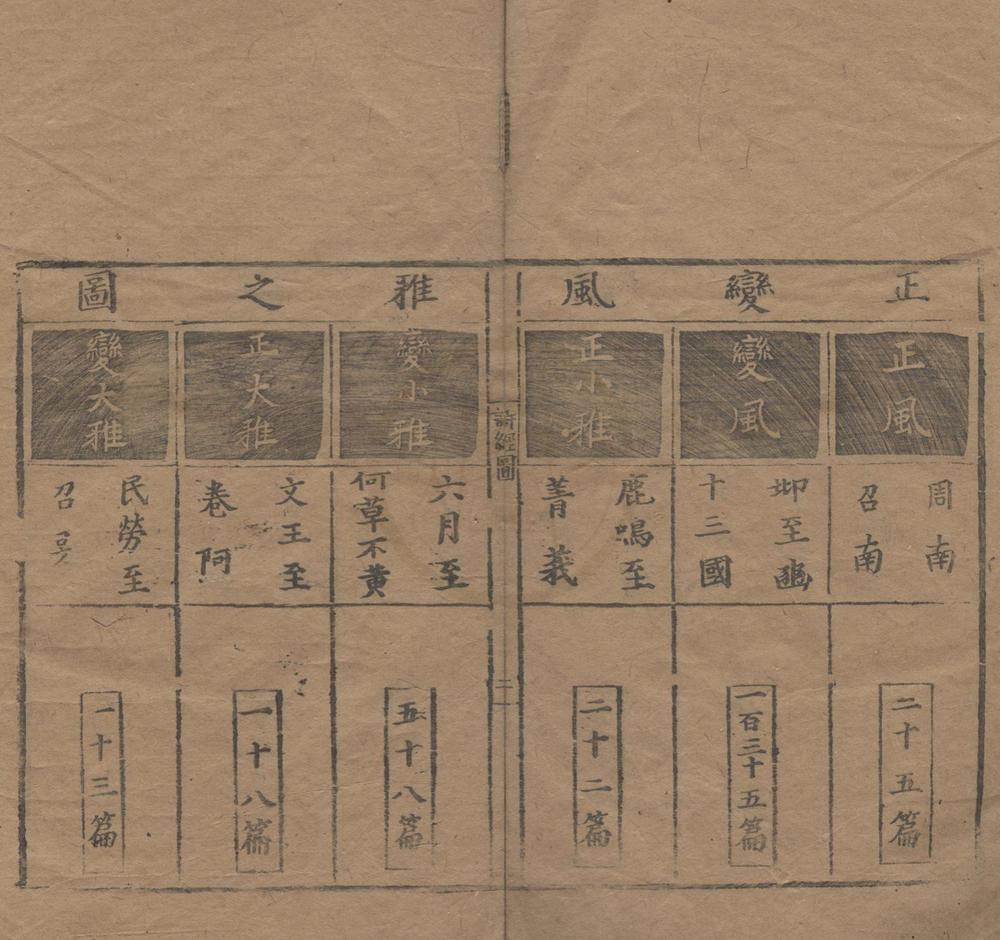 正變風雅之圖
正風
周南
召南
二十五篇
變風
邶至豳
十三國
一百三十五篇
正小雅
鹿鳴至
菁莪
二十二篇
詩經圖
二
變小雅
六月至
何草不黄
五十八篇
正大雅
文王至
卷阿
一十八篇
變大雅
民勞至
召旻
一十三篇